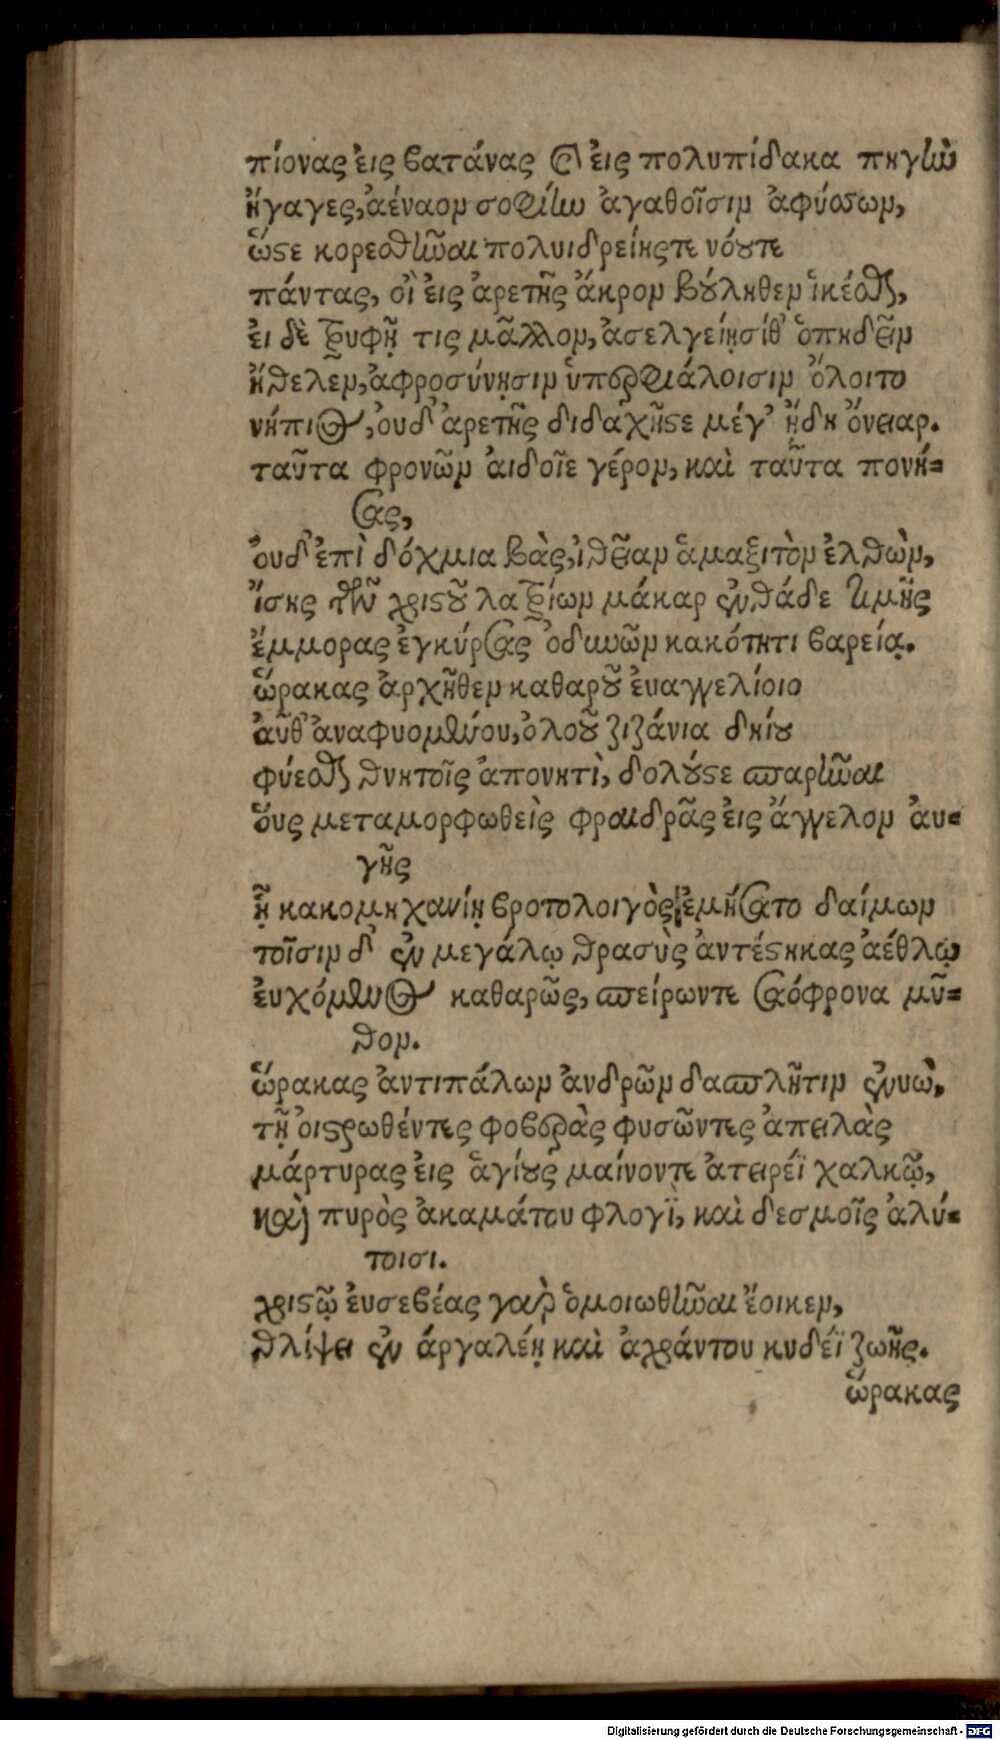 πίονας εἰς βατάνας καὶ εἰς πολυπίδακα πηγὴν
ἤγαγες, ἀέναον σοφίην ἀγαθοῖσιν ἀφύσσων,
ὥστε κορεσθῆναι πολυιδρείηςτε νόουτε
πάντας, οἳ εἰς ἀρετῆς ἄκρον βούληθεν ἱκέσθαι,
εἰ δὲ τρυφῇ τις μᾶλλον, ἀσελγείῃσίθ' ὀπηδεῖν
ἤθελεν, ἀφροσύνῃσιν ὑπερφιάλοισιν ὄλοιτο
νήπιος, οὐδ' ἀρετῆς διδαχῆστε μέγ' ᾔδη ὄνειαρ.
ταῦτα φρονῶν αἰδοῖε γέρον, καὶ ταῦτα πονή=
σας,
οὐδ' ἐπὶ δόχμια βὰς, ἰθεῖαν ἁμαξιτὸν ἐλθὼν,
ἴσης τῶν χριστοῦ λατρίων μάκαρ ἐνθάδε τιμῆς
ἔμμορας ἐγκύρσας ὀδυνῶν κακότητι βαρείᾳ.
ὥρακας ἀρχῆθεν καθαροῦ ἐυαγγελίοιο
αὖθ' ἀναφυομένου, ὀλοοῦ ζιζάνια δηίου
φύεσθαι θνητοῖς ἀπονητὶ, δολούστε σπαρῆναι
οὓς μεταμορφωθεὶς φαιδρᾶς εἰς ἄγγελον αὐ=
γῆς
ᾗ κακομηχανίῃ βροτολοιγὸς ἐμήσατο δαίμων
τοῖσιν δ' ἐν μεγάλῳ θρασὺς ἀντέστηκας ἀέθλῳ
εὐχόμενος καθαρῶς, σπείρωντε σαόφρονα μῦ=
θον.
ὥρακας ἀντιπάλων ἀνδρῶν δασπλῆτιν ἐνυὼ,
τῇ οἰστρωθέντες φοβερὰς φυσῶντες ἀπειλὰς
μάρτυρας εἰς ἁγίους μαίνοντε ἀτειρέϊ χαλκῷ,
καὶ πυρὸς ἀκαμάτου φλογὶ, καὶ δεσμοῖς ἀλύ=
τοισι.
χριστῷ ἐυσεβέας γαρ ὁμοιωθῆναι ἔοικεν,
θλίψει ἐν ἀργαλέῃ καὶ ἀχράντου κυδέϊ ζωῆς.
ὥρακας
Digitalisierung gefördert durch die Deutsche Forschungsgemeinschaft - DFG